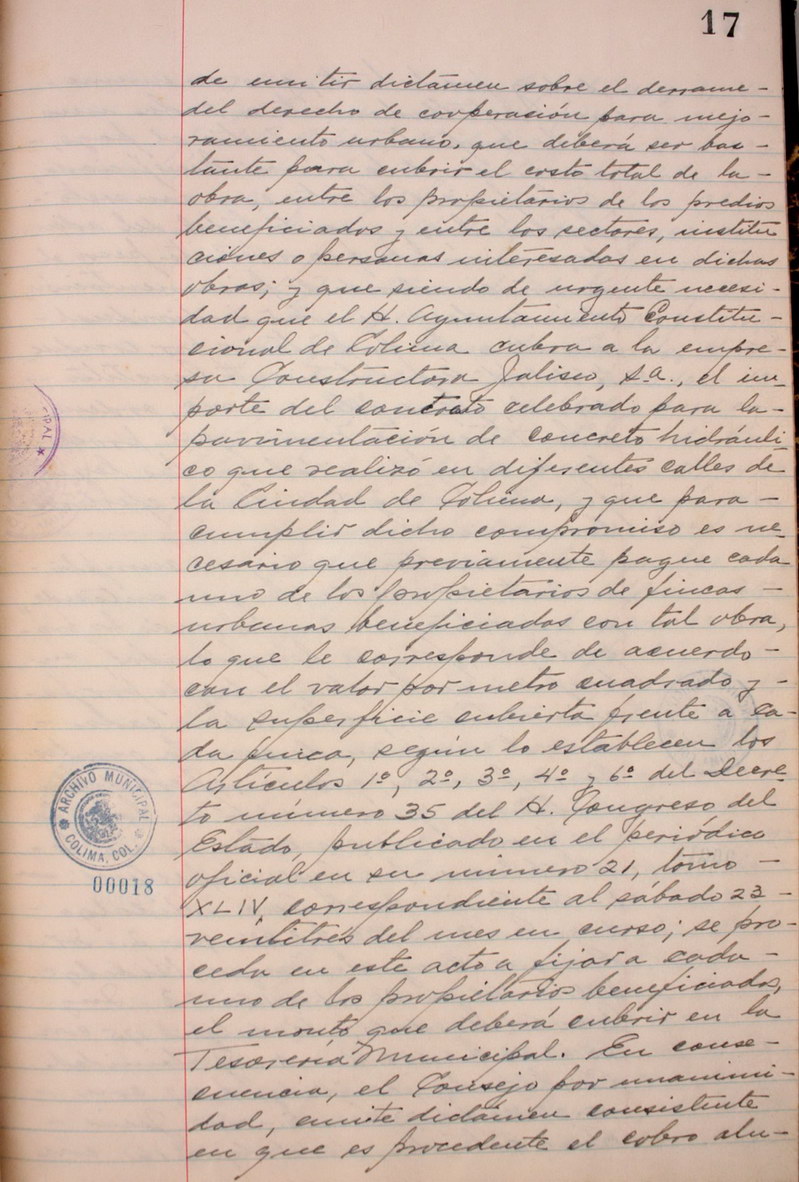 17
de emitir dictámen sobre el derrame-
del derecho de cooperasión para mejo-
ramiento urbano, que deberá ser bas-
tante para cubrir el costo total de la-
obra, entre los propietarios de los predios
beneficiados y entre los sectores, institu
ciones o personas interesadas en dichas
obras; y que siendo de urgente necesi-
dad que el H. Ayuntamiento Constitu-
cional de Colima cubra a la empre-
sa Constructora Jalisco, S.a., el im-
porte del contrato celebrado para la-
pavimentación de concreto hidráuli
co que realizó en diferentes calles de
la Ciudad de Colima, y que para-
cumplir dicho compromiso es ne-
cesario que previamente pague cada
uno de los propietarios de fincas-
urbanas beneficiados con tal obra,
lo que le corresponde de acuerdo-
con el valor por metro cuadrado y-
la superficie cubierta frente a ca-
da finca, según lo establecen los
Artículos 1º, 2º, 3º, 4º y 6º del Decre-
to número 35 del H. Congreso del
Estado, publicado en el periódico
oficial en su número 21, tomo-
XLIV, correspondiente al sábado 23-
veintitrés del mes en curso; se pro-
ceda en este acto a fijar a cada-
uno de los propietarios beneficiados,
el monto que deberá cubrir en la
Tesorería Municipal. En conse-
cuencia, el Consejo por unanimi-
dad, emite dictámen consistente
en que es procedente el cobro alu-
CIPAL
ARCHIVO MUNICIPAL
COLIMA, COL.
00018